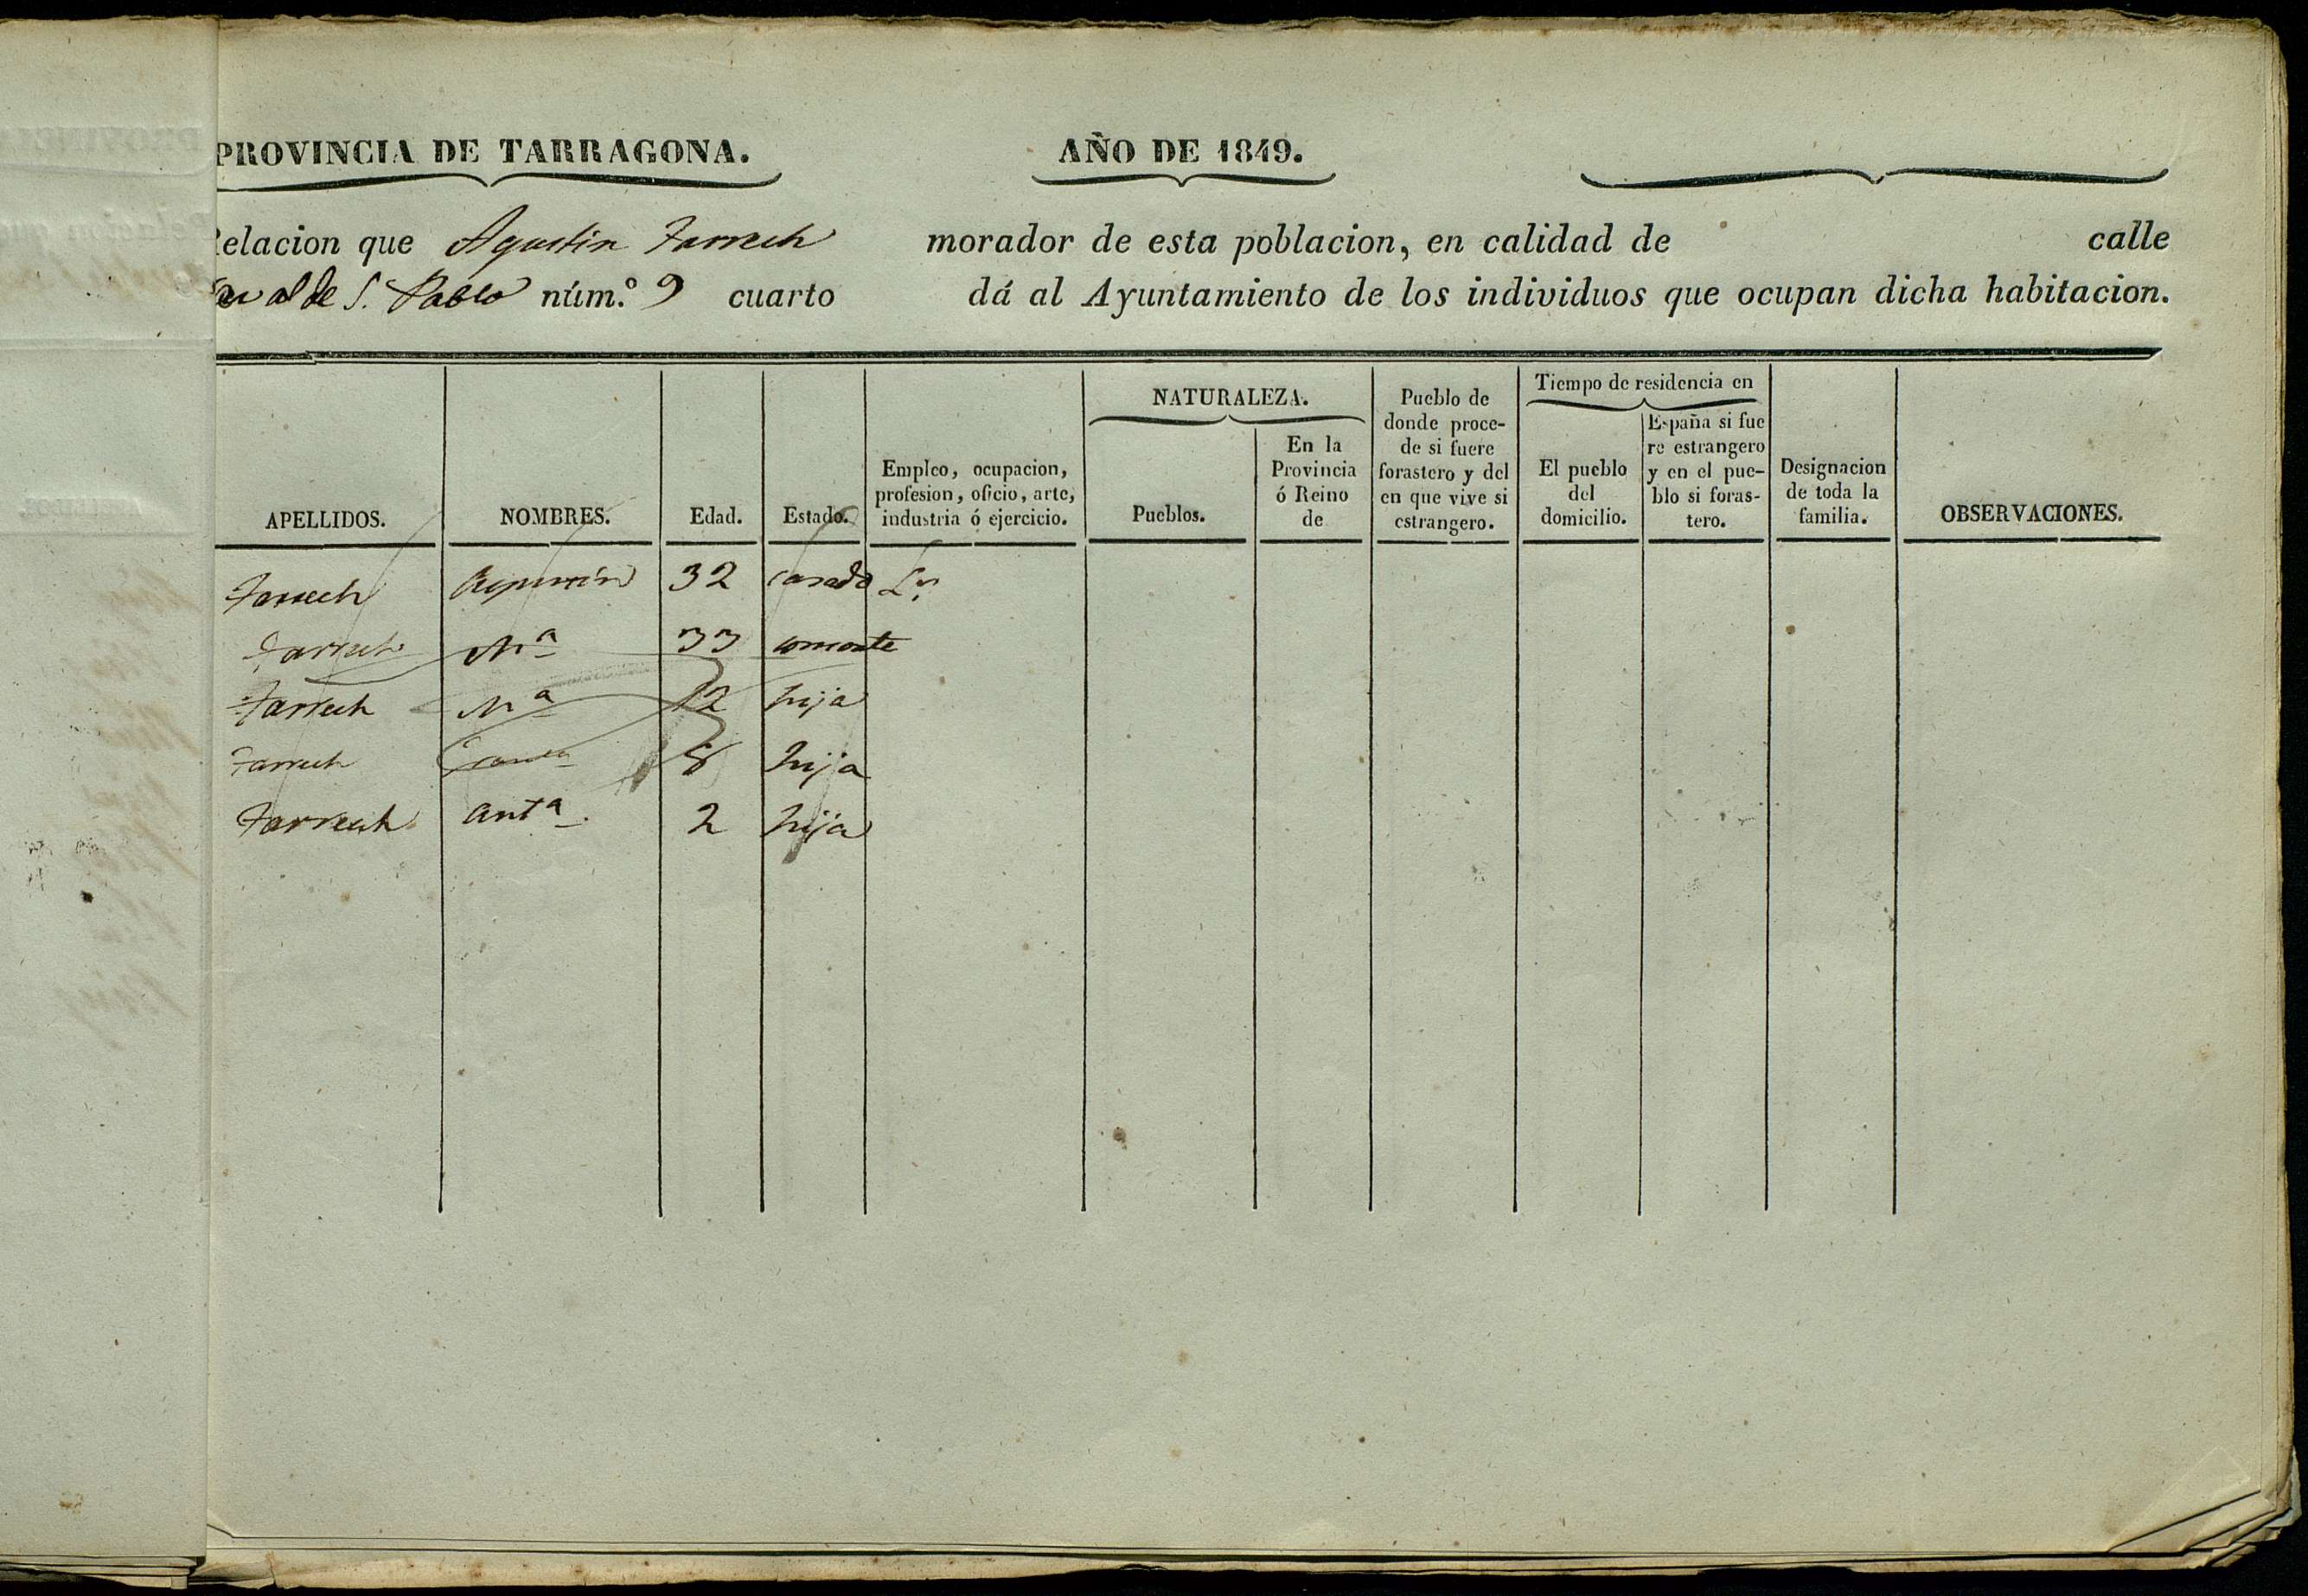 PROVINCIA DE TARRAGONA. AÑO DE 1849.
elacion que Agustin Tarrech morador de esta poblacion, en calidad de calle
al de S. Pablo núm.º 9 cuarto dá al Ayuntamiento de los individuos que ocupan dicha habitacion.
APELLIDOS.
NOMBRES.
Edad.
Estado.
Empleo, ocupacion,
profesion, oficio, arte,
industria ó ejercicio.
NATURALEZA.
Pueblos.
En la
Provincia
ó Reino
de
Pueblo de
donde proce-
de si fuere
forastero y del
en que vive si
estrangero.
Tiempo de residencia en
El pueblo
del
domicilio.
España si fue
re estrangero
y en el pue-
blo si foras-
tero.
Designacion
de toda la
familia.
OBSERVACIONES.
Tarrech Agustin 32 casado
Tarrech Mª 33 consorte
Tarrech Mª 12 hija
Tarrech 8 hija
Tarrech Antª 2 hija